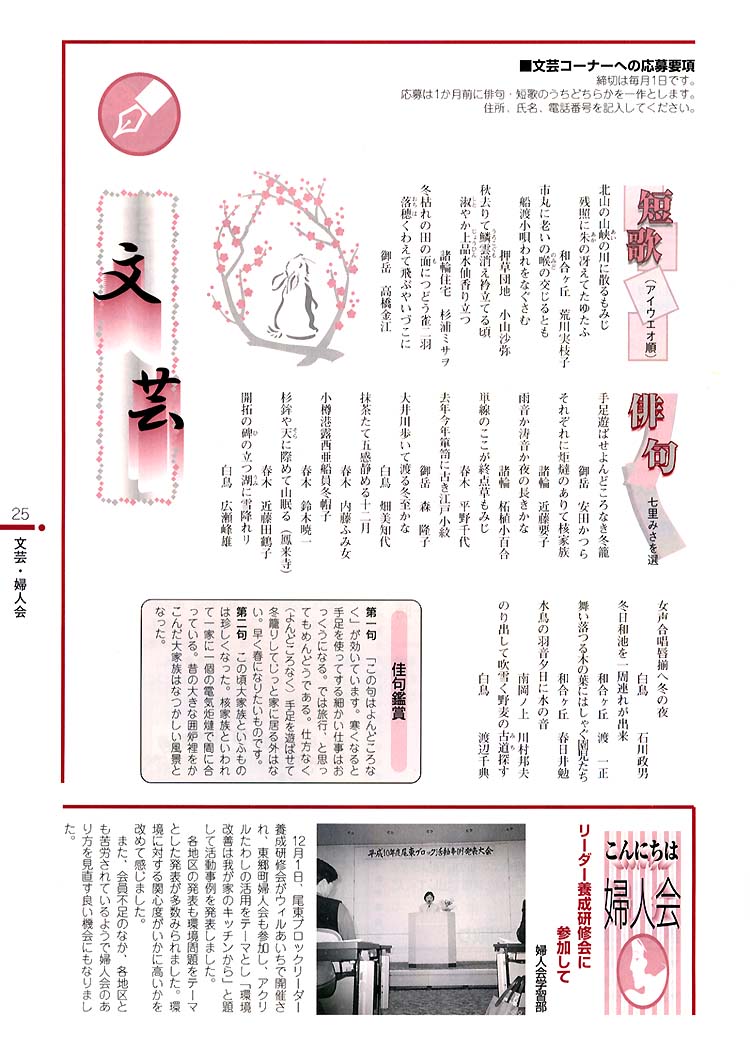 ■文芸コーナーへの応募要項
締切は毎月1日です。
応募は1か月前に俳句・短歌のうちどちらかを一作とします。
住所、氏名、電話番号を記入してください。
文芸
短歌
(アイウエオ順)
北山の山峡の川に散るもみじ
残照に朱の冴えてたゆたふ
和合ヶ丘 荒川実枝子
市丸に老いの喉の交じるとも
船渡小唄われをなぐさむ
押草団地 小山沙弥
秋去りて鱗雲消え衿立てる頃
淑やか上品水仙香り立つ
諸輪住宅 杉浦ミサヲ
冬枯れの田の面につどう雀二羽
落穂くわえて飛ぶやいづこに
御岳 高橋金江
俳句
七里みさを選
手足遊ばせよんどころなき冬籠
御岳 安田かつら
それぞれに炬燵のありて核家族
諸輪 近藤要子
雨音か濤音か夜の長きかな
諸輪 柘植小百合
単線のここが終点草もみじ
春木 平野千代
去年今年箪笥に古き江戸小紋
御岳 森 隆子
大井川歩いて渡る冬至かな
白鳥 畑美知代
抹茶たて五感静める十二月
春木 内藤ふみ女
小樽港露西亜船員冬帽子
春木 鈴木暁一
杉鉾や天に際めて山眠る(鳳来寺)
春木 近藤田鶴子
開拓の碑の立つ湖に雪降れり
白鳥 広瀬峰雄
女声合唱唇揃へ冬の夜
白鳥 石川政男
冬日和池を一周連れが出来
和合ヶ丘 渡 一正
舞い落つる木の葉にはしゃぐ園児たち
和合ヶ丘 春日井勉
水鳥の羽音夕日に水の音
南岡ノ上 川村邦夫
のり出して吹雪く野麦の古道探す
白鳥 渡辺千典
佳句鑑賞
第一句 「この句はよんどころな
く」が効いています。寒くなると
手足を使ってする細かい仕事はお
っくうになる。では旅行、と思っ
てもめんどうである。仕方なく
(よんどころなく)手足を遊ばせて
冬籠りしてじっと家に居る外はな
い。早く春になりたいものです。
第二句 この頃大家族といふもの
は珍しくなった。核家族といわれ
て一家に一個の電気炬燵で間に合
っている。昔の大きな囲炉裡をか
こんだ大家族はなつかしい風景と
なった。
25
文芸・婦人会
こんにちは
婦人会
リーダー養成研修会に
参加して
婦人会学習部
平成10年度尾東ブロック活動事例発表大会
12月1日、尾東ブロックリーダー
養成研修会がウィルあいちで開催さ
れ、東郷町婦人会も参加し、アクリ
ルたわしの活用をテーマとし「環境
改善は我が家のキッチンから」と題
して活動事例を発表しました。
各地区の発表も環境問題をテーマ
とした発表が多数みられました。環
境に対する関心度がいかに高いかを
改めて感じました。
また、会員不足のなか、各地区と
も苦労されているようで婦人会のあ
り方を見直す良い機会にもなりまし
た。